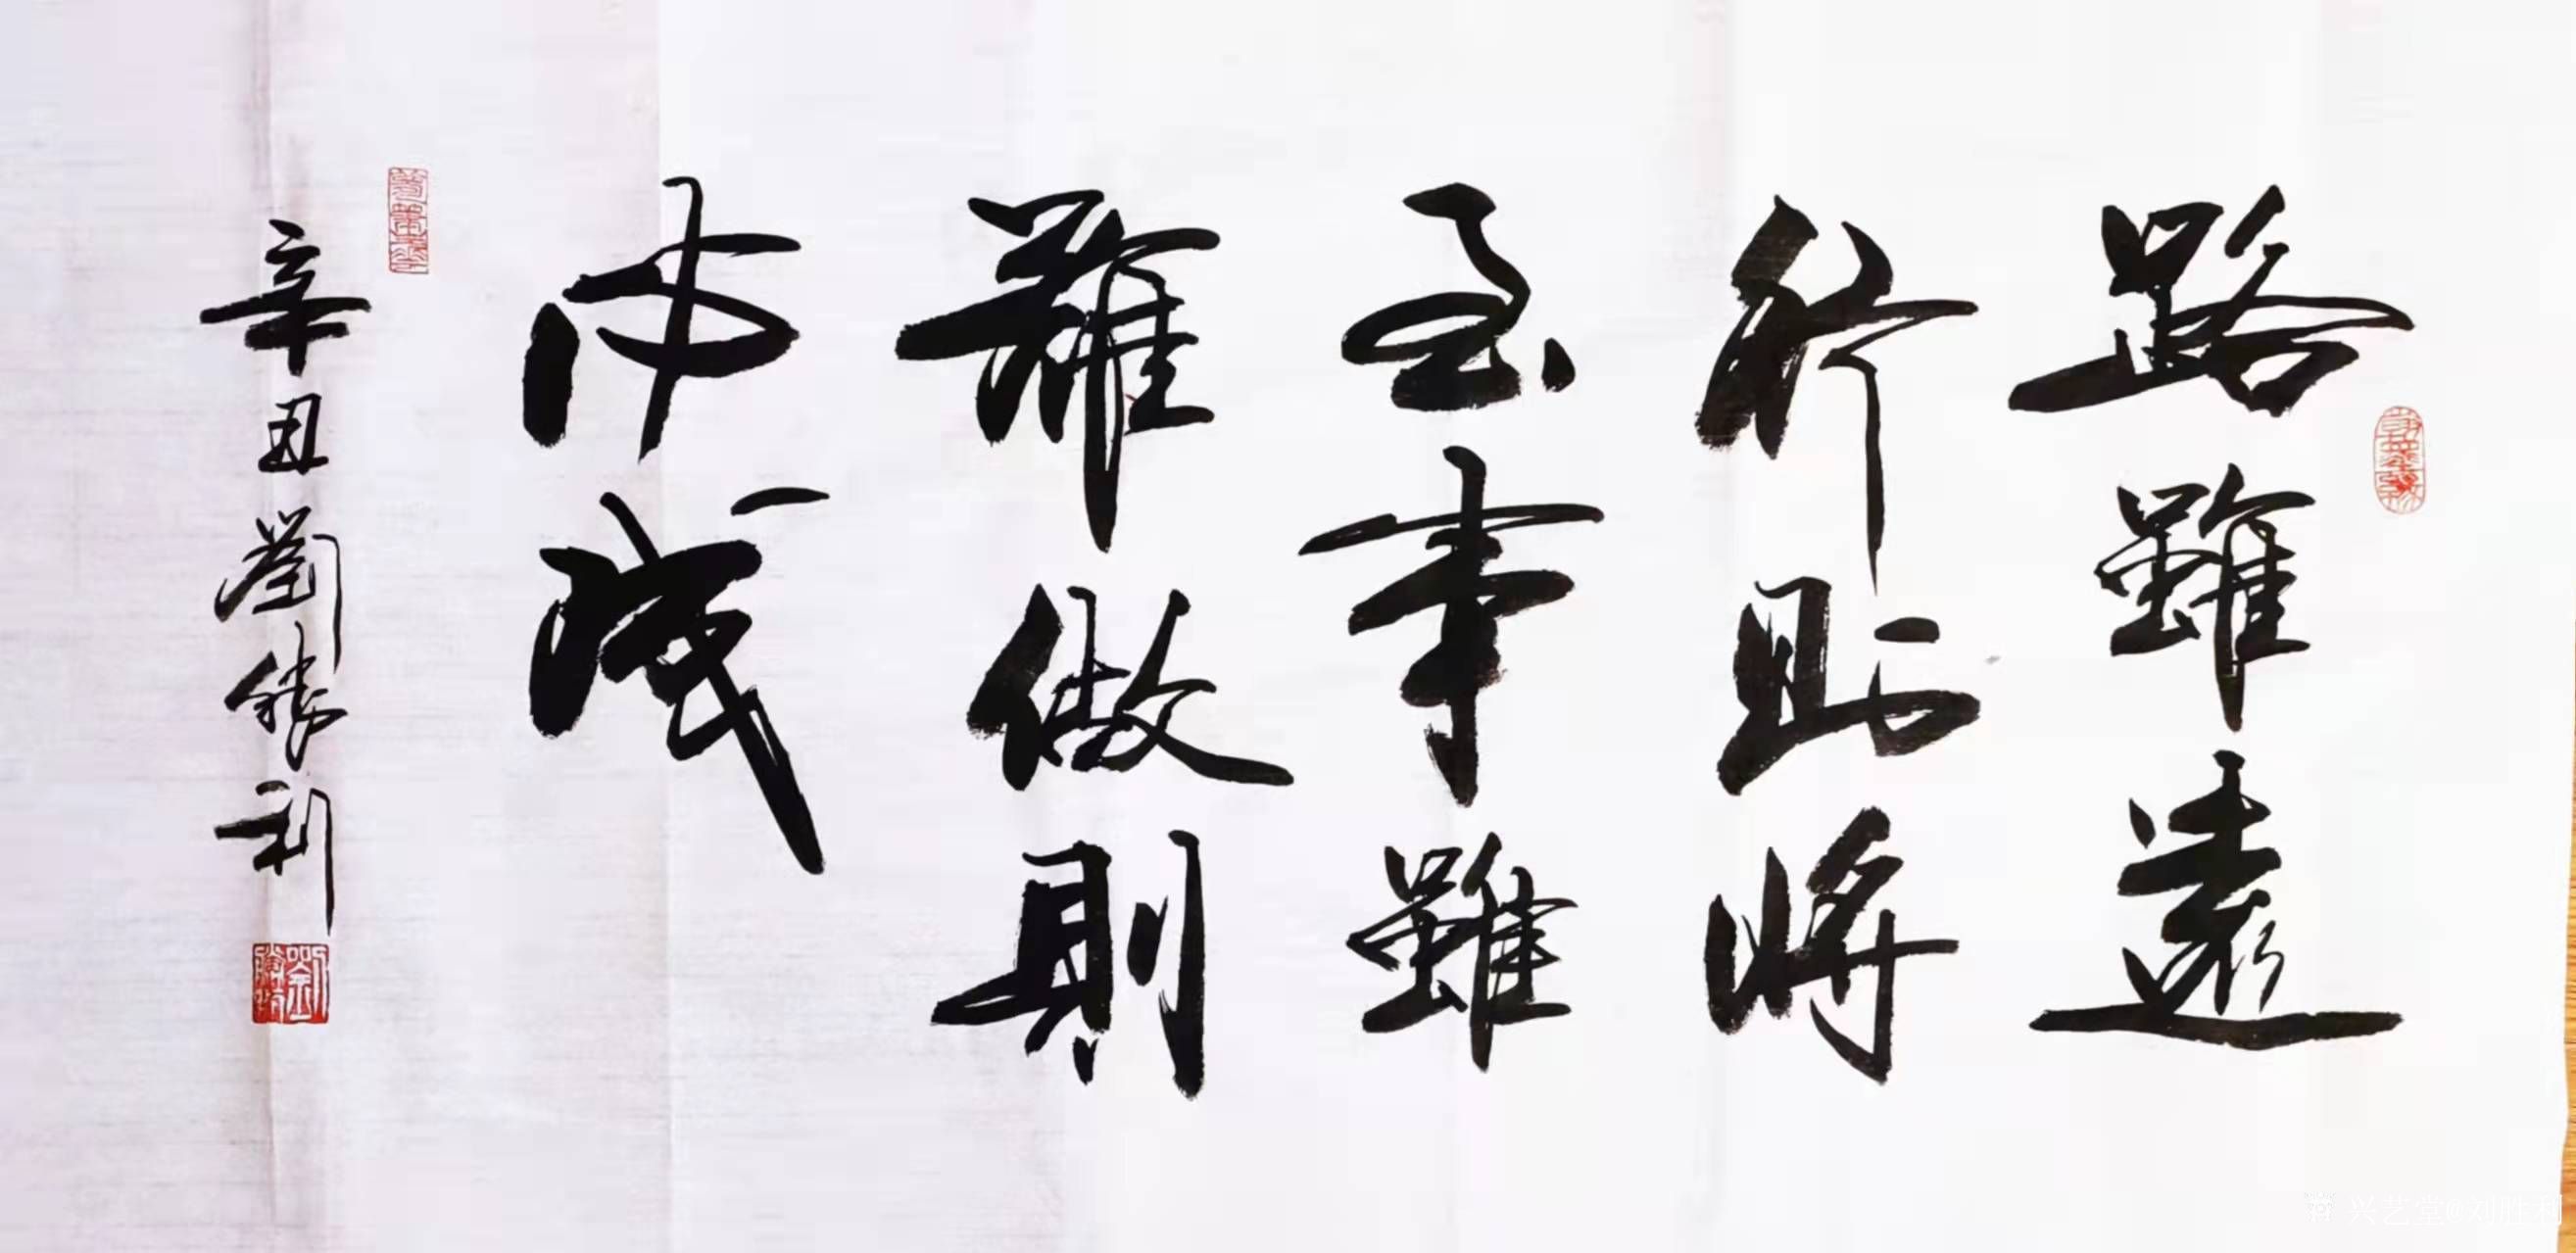 路雖遠
行則將
至事雖
難做則
必成
辛丑劉勝利
兴艺堂@刘胜利